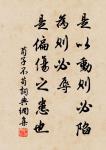 是以動則必陷
為則必辱
是偏傷之患也
荀子不苟詞典網集